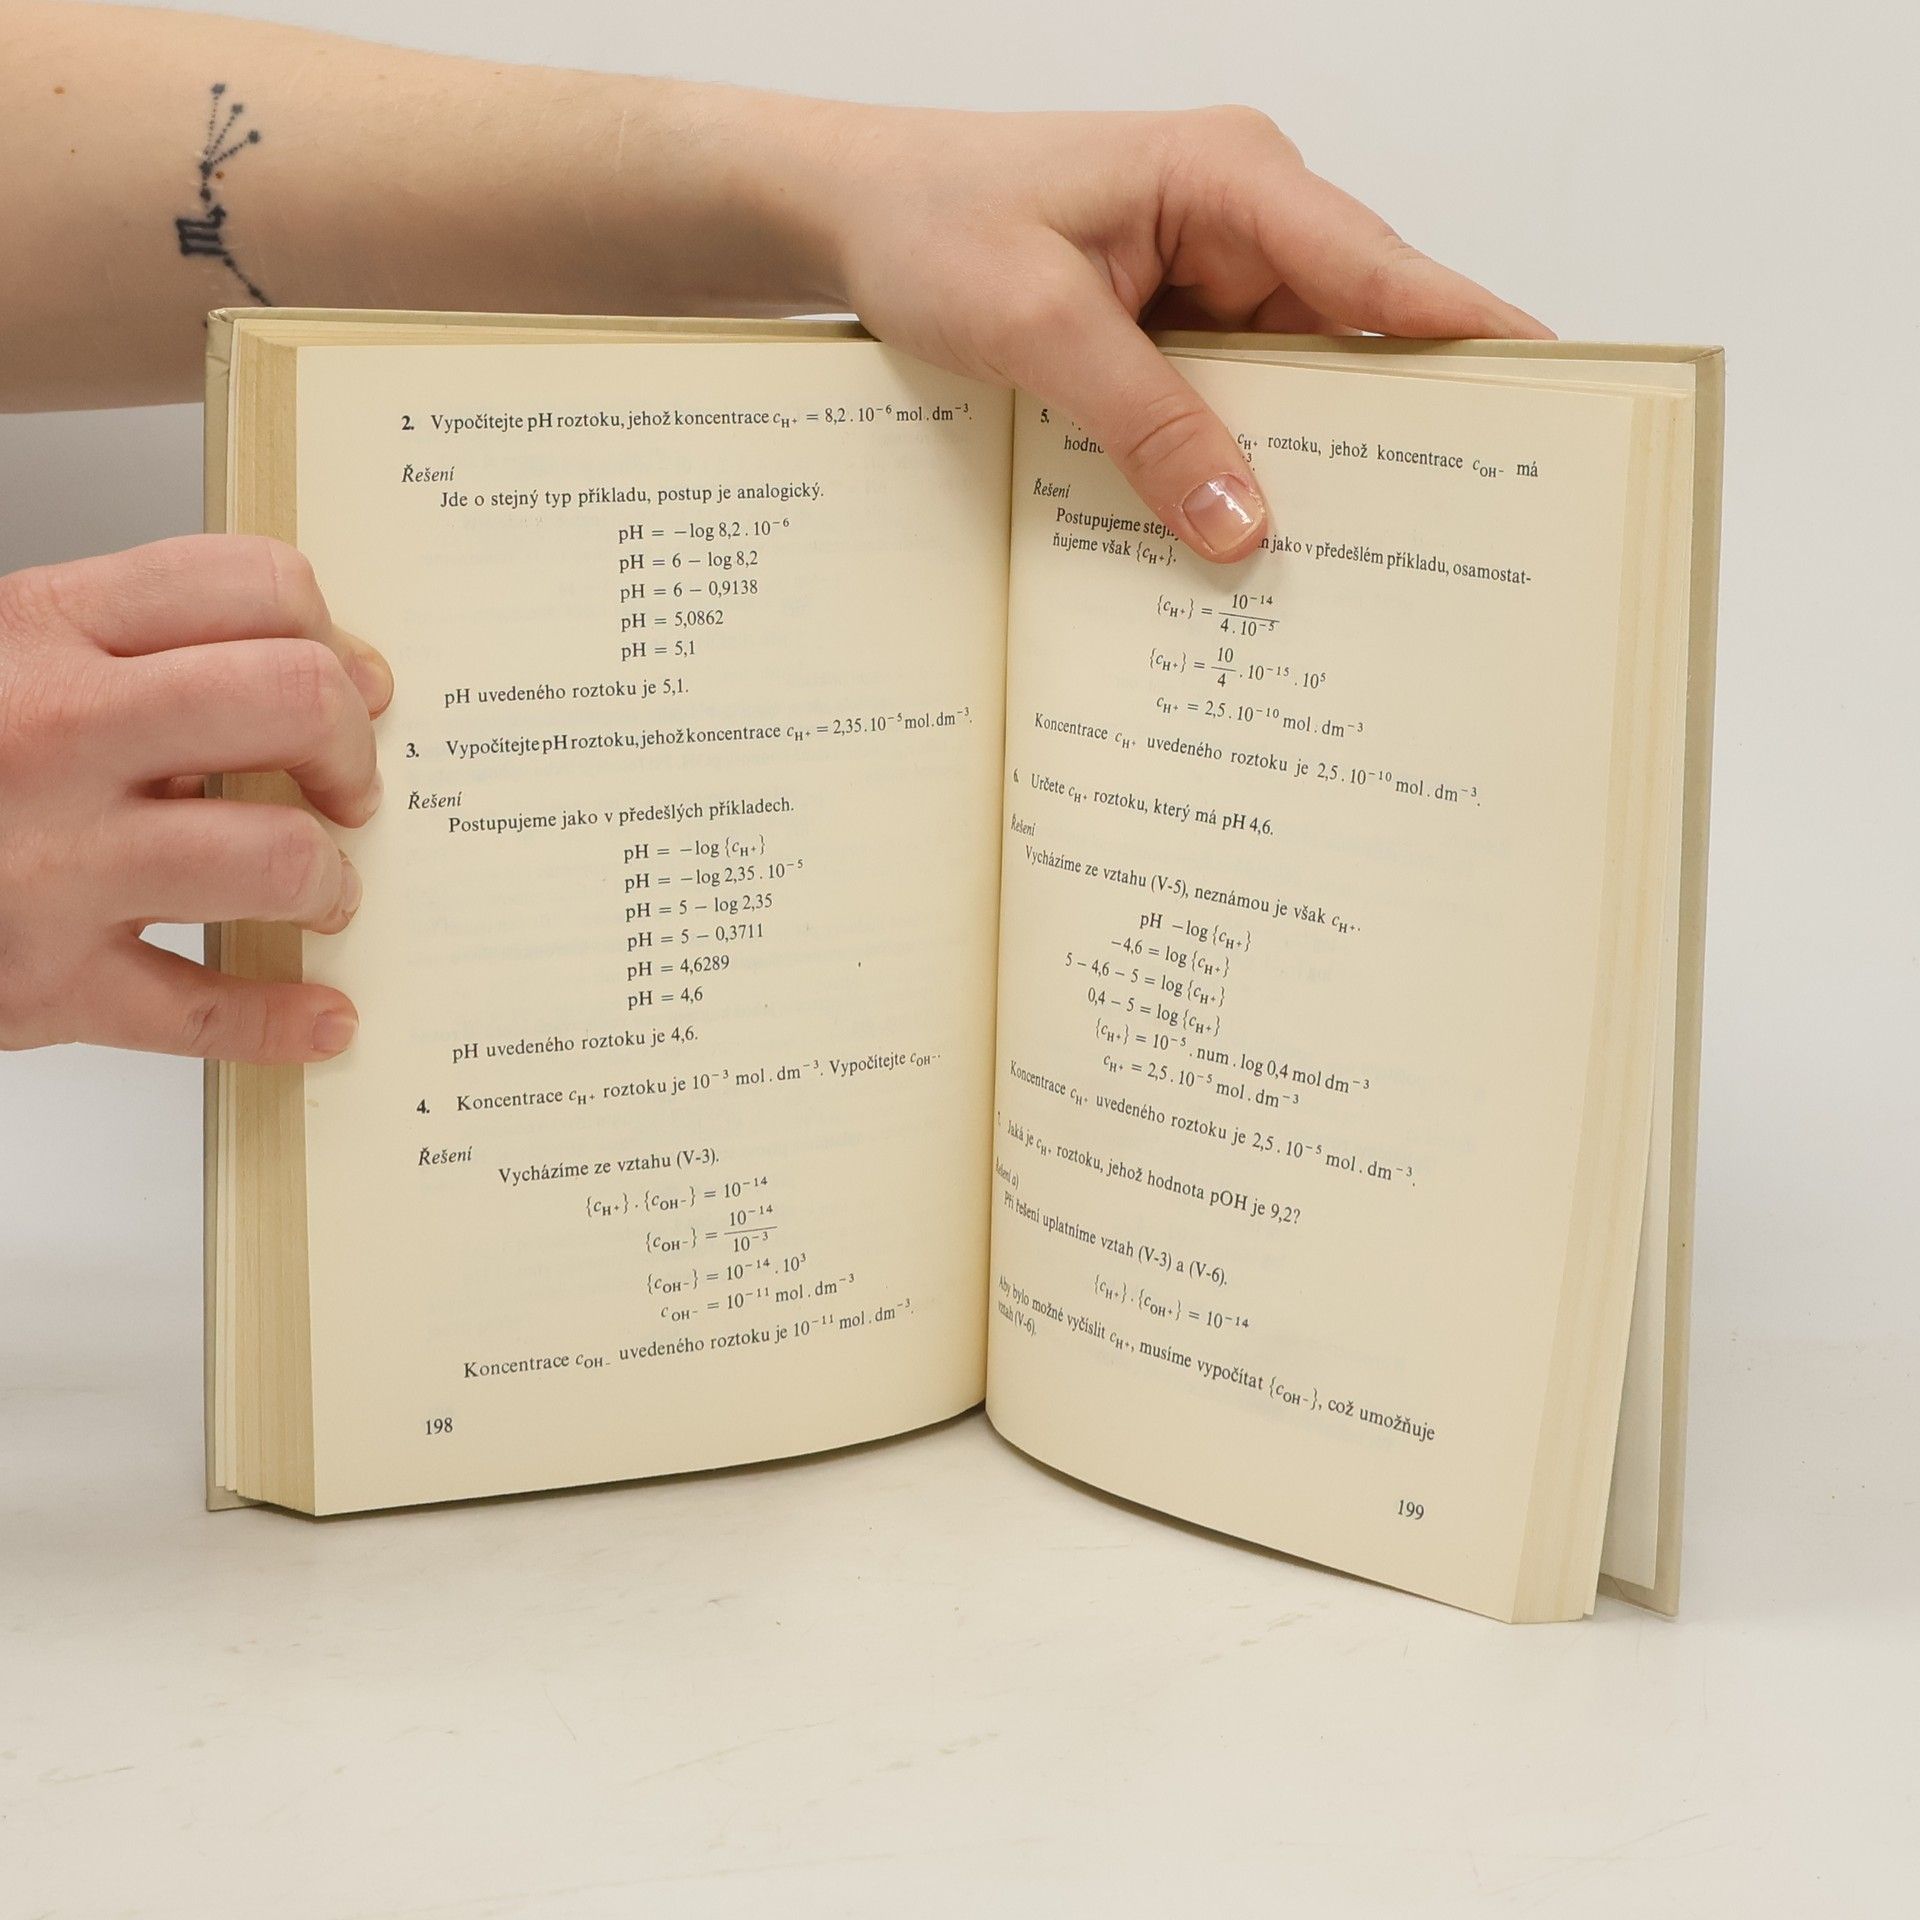 2. Vypočítejte pH roztoku, jehož koncentrace c_H⁺ = 8,2 . 10⁻⁶ mol . dm⁻³.
Řešení
Jde o stejný typ příkladu, postup je analogický.
pH = −log 8,2 . 10⁻⁶
pH = 6 − log 8,2
pH = 6 − 0,9138
pH = 5,0862
pH = 5,1
pH uvedeného roztoku je 5,1.
3. Vypočítejte pH roztoku, jehož koncentrace c_H⁺ = 2,35 . 10⁻⁵ mol . dm⁻³.
Řešení
Postupujeme jako v předešlých příkladech.
pH = −log {c_H⁺}
pH = −log 2,35 . 10⁻⁵
pH = 5 − log 2,35
pH = 5 − 0,3711
pH = 4,6289
pH = 4,6
pH uvedeného roztoku je 4,6.
4. Koncentrace c_H⁺ roztoku je 10⁻³ mol . dm⁻³. Vypočítejte c_OH⁻.
Řešení
Vycházíme ze vztahu (V-3).
{c_H⁺} . {c_OH⁻} = 10⁻¹⁴
{c_OH⁻} = 10⁻¹⁴ / 10⁻³
{c_OH⁻} = 10⁻¹⁴ . 10³
c_OH⁻ = 10⁻¹¹ mol . dm⁻³
Koncentrace c_OH⁻ uvedeného roztoku je 10⁻¹¹ mol . dm⁻³.
198
5. c_H⁺ roztoku, jehož koncentrace c_OH⁻ má
Řešení
Postupujeme jako v předešlém příkladu, osamostat-
ňujeme však {c_H⁺}.
{c_H⁺} = 10⁻¹⁴ / 4 . 10⁻⁵
{c_H⁺} = 10 / 4 . 10⁻¹⁵ . 10⁵
c_H⁺ = 2,5 . 10⁻¹⁰ mol . dm⁻³
Koncentrace c_H⁺ uvedeného roztoku je 2,5 . 10⁻¹⁰ mol . dm⁻³.
6. Určete c_H⁺ roztoku, který má pH 4,6.
Řešení
Vycházíme ze vztahu (V-5), neznámou je však c_H⁺.
pH −log {c_H⁺}
−4,6 = log {c_H⁺}
5 − 4,6 − 5 = log {c_H⁺}
0,4 − 5 = log {c_H⁺}
{c_H⁺} = 10⁻⁵ . num . log 0,4 mol dm⁻³
c_H⁺ = 2,5 . 10⁻⁵ mol . dm⁻³
Koncentrace c_H⁺ uvedeného roztoku je 2,5 . 10⁻⁵ mol . dm⁻³.
7. Jaká je c_H⁺ roztoku, jehož hodnota pOH je 9,2?
Řešení a)
Při řešení uplatníme vztah (V-3) a (V-6).
{c_H⁺} . {c_OH⁺} = 10⁻¹⁴
Aby bylo možné vyčíslit c_H⁺, musíme vypočítat {c_OH⁻}, což umožňuje
vztah (V-6).
199